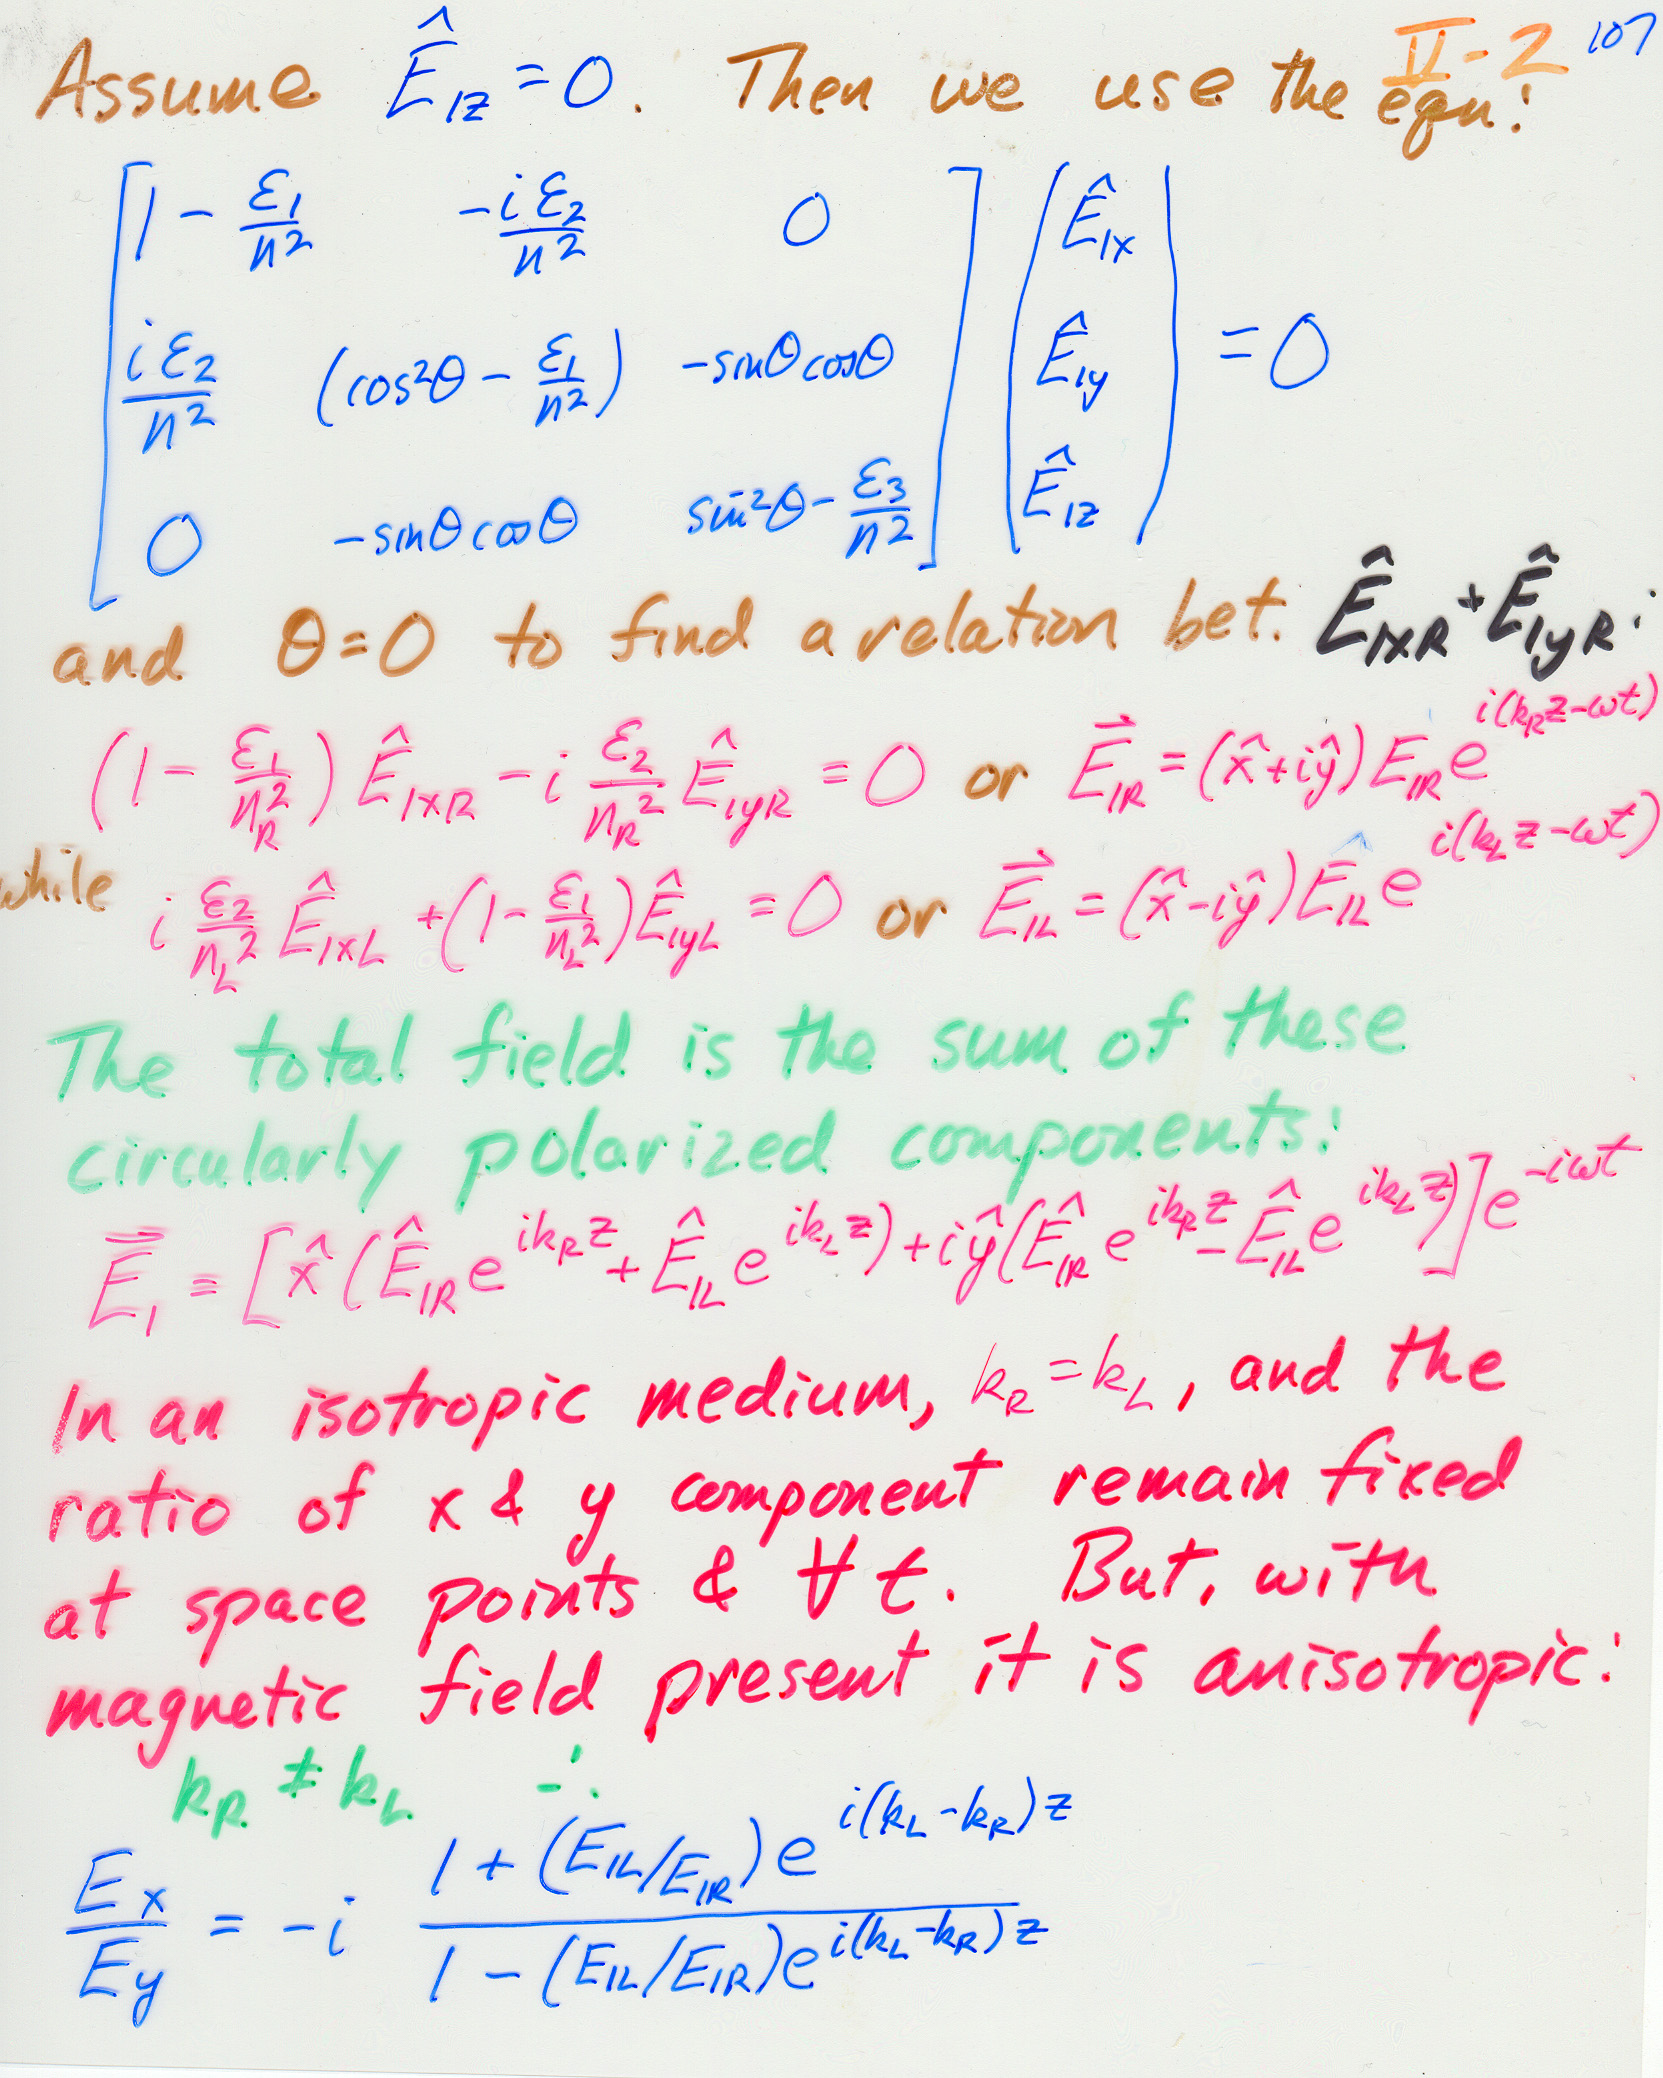 II-2 107
Assume Ê₁z = 0. Then we use the eqn:
[ 1 - ε₁/n² -iε₂/n² 0 ] ( Ê₁x )
[ iε₂/n² (cos²θ - ε₁/n²) -sinθcosθ ] ( Ê₁y ) = 0
[ 0 -sinθcosθ sin²θ - ε₃/n² ] ( Ê₁z )
and θ=0 to find a relation bet. Ê₁xR + Ê₁yR:
(1 - ε₁/n_R²) Ê₁xR - i ε₂/n_R² Ê₁yR = 0 or E⃗₁R = (x̂+iŷ) E₁R e^{i(k_R z-ωt)}
while i ε₂/n_L² Ê₁xL + (1 - ε₁/n_L²) Ê₁yL = 0 or E⃗₁L = (x̂-iŷ) Ê₁L e^{i(k_L z-ωt)}
The total field is the sum of these
circularly polarized components:
E⃗₁ = [x̂(Ê₁R e^{ik_R z} + Ê₁L e^{ik_L z}) + iŷ(Ê₁R e^{ik_R z} - Ê₁L e^{ik_L z})] e^{-iωt}
In an isotropic medium, k_R = k_L, and the
ratio of x & y component remain fixed
at space points & ∀ t. But, with
magnetic field present it is anisotropic:
k_R ≠ k_L ∴
Ex/Ey = -i (1 + (E₁L/E₁R) e^{i(k_L-k_R)z}) / (1 - (E₁L/E₁R) e^{i(k_L-k_R)z})